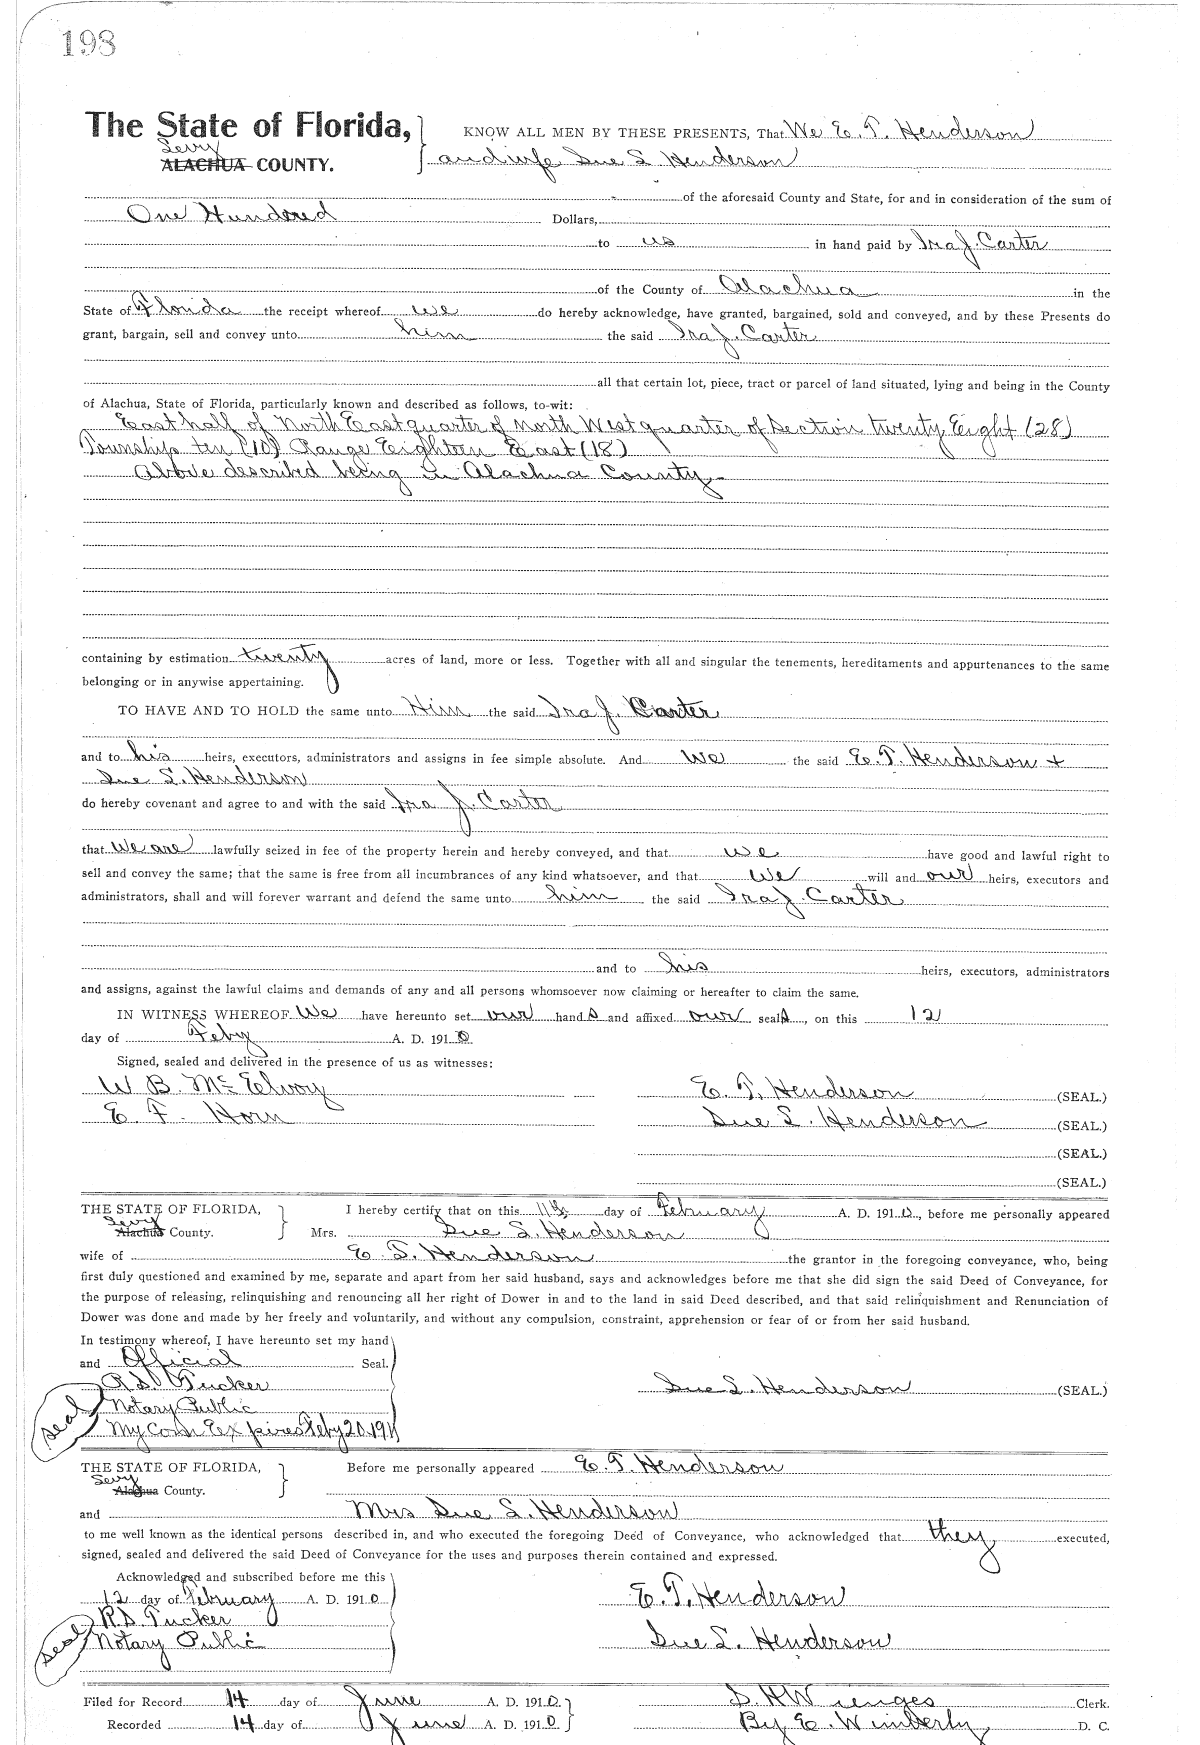 198
The State of Florida,
Levy
ALACHUA COUNTY.
KNOW ALL MEN BY THESE PRESENTS, That We E. T. Henderson
and wife Sue S Henderson
of the aforesaid County and State, for and in consideration of the sum of
One Hundred Dollars,
to us in hand paid by Ira J. Carter
of the County of Alachua in the
State of Florida the receipt whereof we do hereby acknowledge, have granted, bargained, sold and conveyed, and by these Presents do
grant, bargain, sell and convey unto him the said Ira J. Carter
all that certain lot, piece, tract or parcel of land situated, lying and being in the County
of Alachua, State of Florida, particularly known and described as follows, to-wit:
East half of North East quarter of North West quarter of Section twenty Eight (28)
Township ten (10) Range Eighteen East (18)
Above described being in Alachua County
containing by estimation twenty acres of land, more or less. Together with all and singular the tenements, hereditaments and appurtenances to the same
belonging or in anywise appertaining.
TO HAVE AND TO HOLD the same unto Him the said Ira J. Carter
and to his heirs, executors, administrators and assigns in fee simple absolute. And we the said E. T. Henderson +
Sue S. Henderson
do hereby covenant and agree to and with the said Ira J. Carter
that We are lawfully seized in fee of the property herein and hereby conveyed, and that we have good and lawful right to
sell and convey the same; that the same is free from all incumbrances of any kind whatsoever, and that we will and our heirs, executors and
administrators, shall and will forever warrant and defend the same unto him the said Ira J. Carter
and to his heirs, executors, administrators
and assigns, against the lawful claims and demands of any and all persons whomsoever now claiming or hereafter to claim the same.
IN WITNESS WHEREOF We have hereunto set our hands and affixed our seals, on this 12
day of Feby A. D. 1910.
Signed, sealed and delivered in the presence of us as witnesses:
W B. McElvoy
E. T. Henderson (SEAL.)
E. F. Horn
Sue S. Henderson (SEAL.)
(SEAL.)
(SEAL.)
THE STATE OF FLORIDA,
Levy
Alachua County.
I hereby certify that on this day of February A. D. 1910, before me personally appeared
Mrs. Sue S. Henderson
wife of E T. Henderson the grantor in the foregoing conveyance, who, being
first duly questioned and examined by me, separate and apart from her said husband, says and acknowledges before me that she did sign the said Deed of Conveyance, for
the purpose of releasing, relinquishing and renouncing all her right of Dower in and to the land in said Deed described, and that said relinquishment and Renunciation of
Dower was done and made by her freely and voluntarily, and without any compulsion, constraint, apprehension or fear of or from her said husband.
In testimony whereof, I have hereunto set my hand
and Official Seal.
R.D. Tucker
Sue S. Henderson (SEAL.)
Notary Public
seal
My Com Expires Feby 20, 1911
THE STATE OF FLORIDA,
Levy
Alachua County.
Before me personally appeared E. T. Henderson
and Mrs Sue S. Henderson
to me well known as the identical persons described in, and who executed the foregoing Deed of Conveyance, who acknowledged that they executed,
signed, sealed and delivered the said Deed of Conveyance for the uses and purposes therein contained and expressed.
Acknowledged and subscribed before me this
12 day of February A. D. 1910
E. T. Henderson
R.D. Tucker
seal
Notary Public
Sue S. Henderson
Filed for Record 14 day of June A. D. 1910.
S. H. Wienges Clerk.
Recorded 14 day of June A. D. 1910
By E. Wimberly D. C.